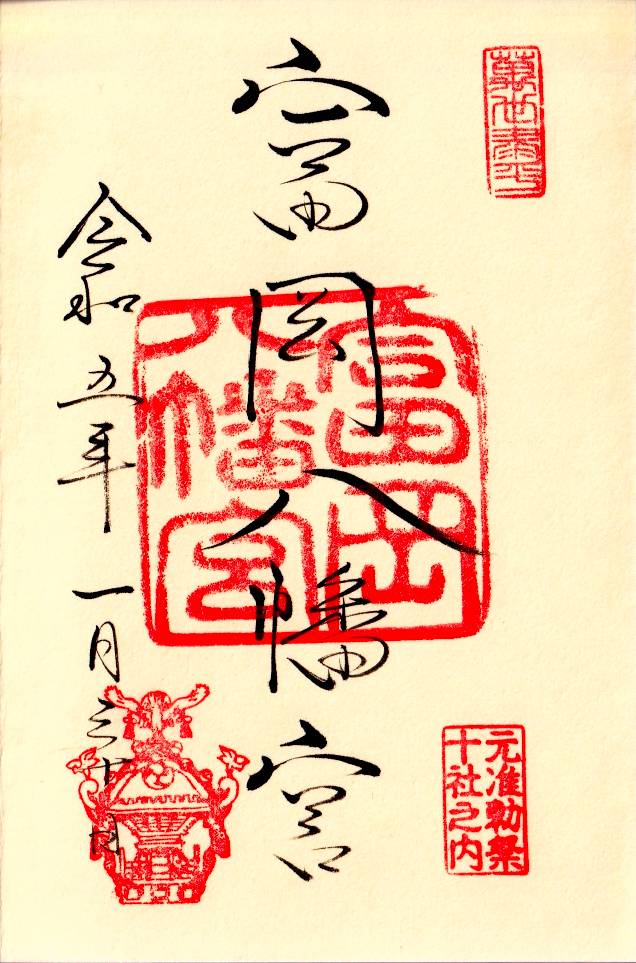 萬世泰平
元准勅祭
十社之内
富岡八幡宮
富岡
八幡宮
令和五年一月三十日